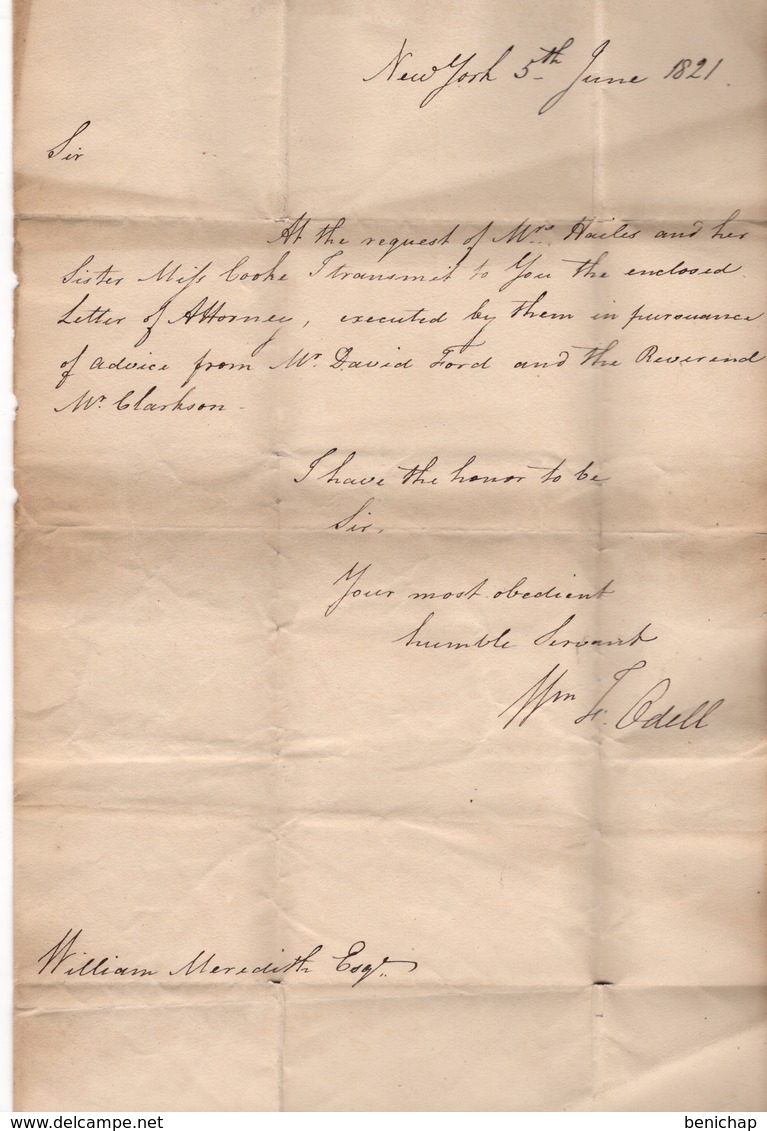 New York 5th June 1821.
Sir
At the request of Mrs. Hailes and her
Sister Miss Cooke I transmit to You the enclosed
Letter of Attorney, executed by them in pursuance
of advice from Mr. David Ford and the Reverend
Mr. Clarkson.
I have the honor to be
Sir,
Your most obedient
humble Servant
Wm F. Odell
William Meredith Esqr.
www.delcampe.net
benichap